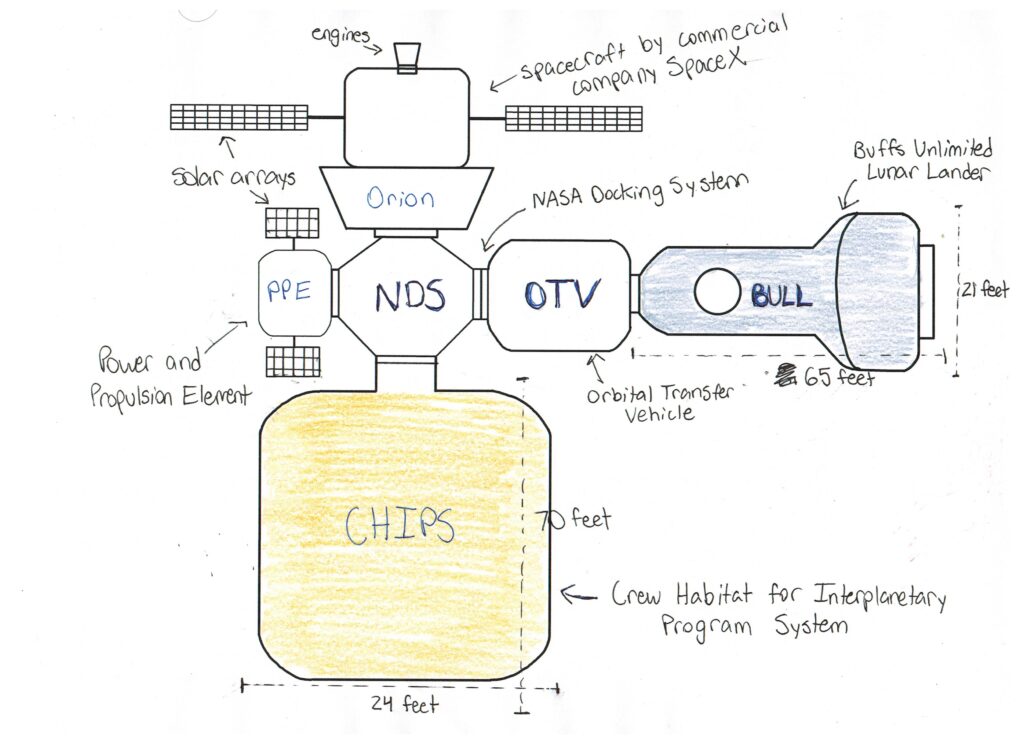 engines
spacecraft by commercial
company SpaceX
Solar arrays
Orion
NASA Docking System
Buffs Unlimited
Lunar Lander
PPE
NDS
OTV
BULL
21 feet
Power and
Propulsion Element
65 feet
Orbital Transfer
Vehicle
CHIPS
70 feet
Crew Habitat for Interplanetary
Program System
24 feet